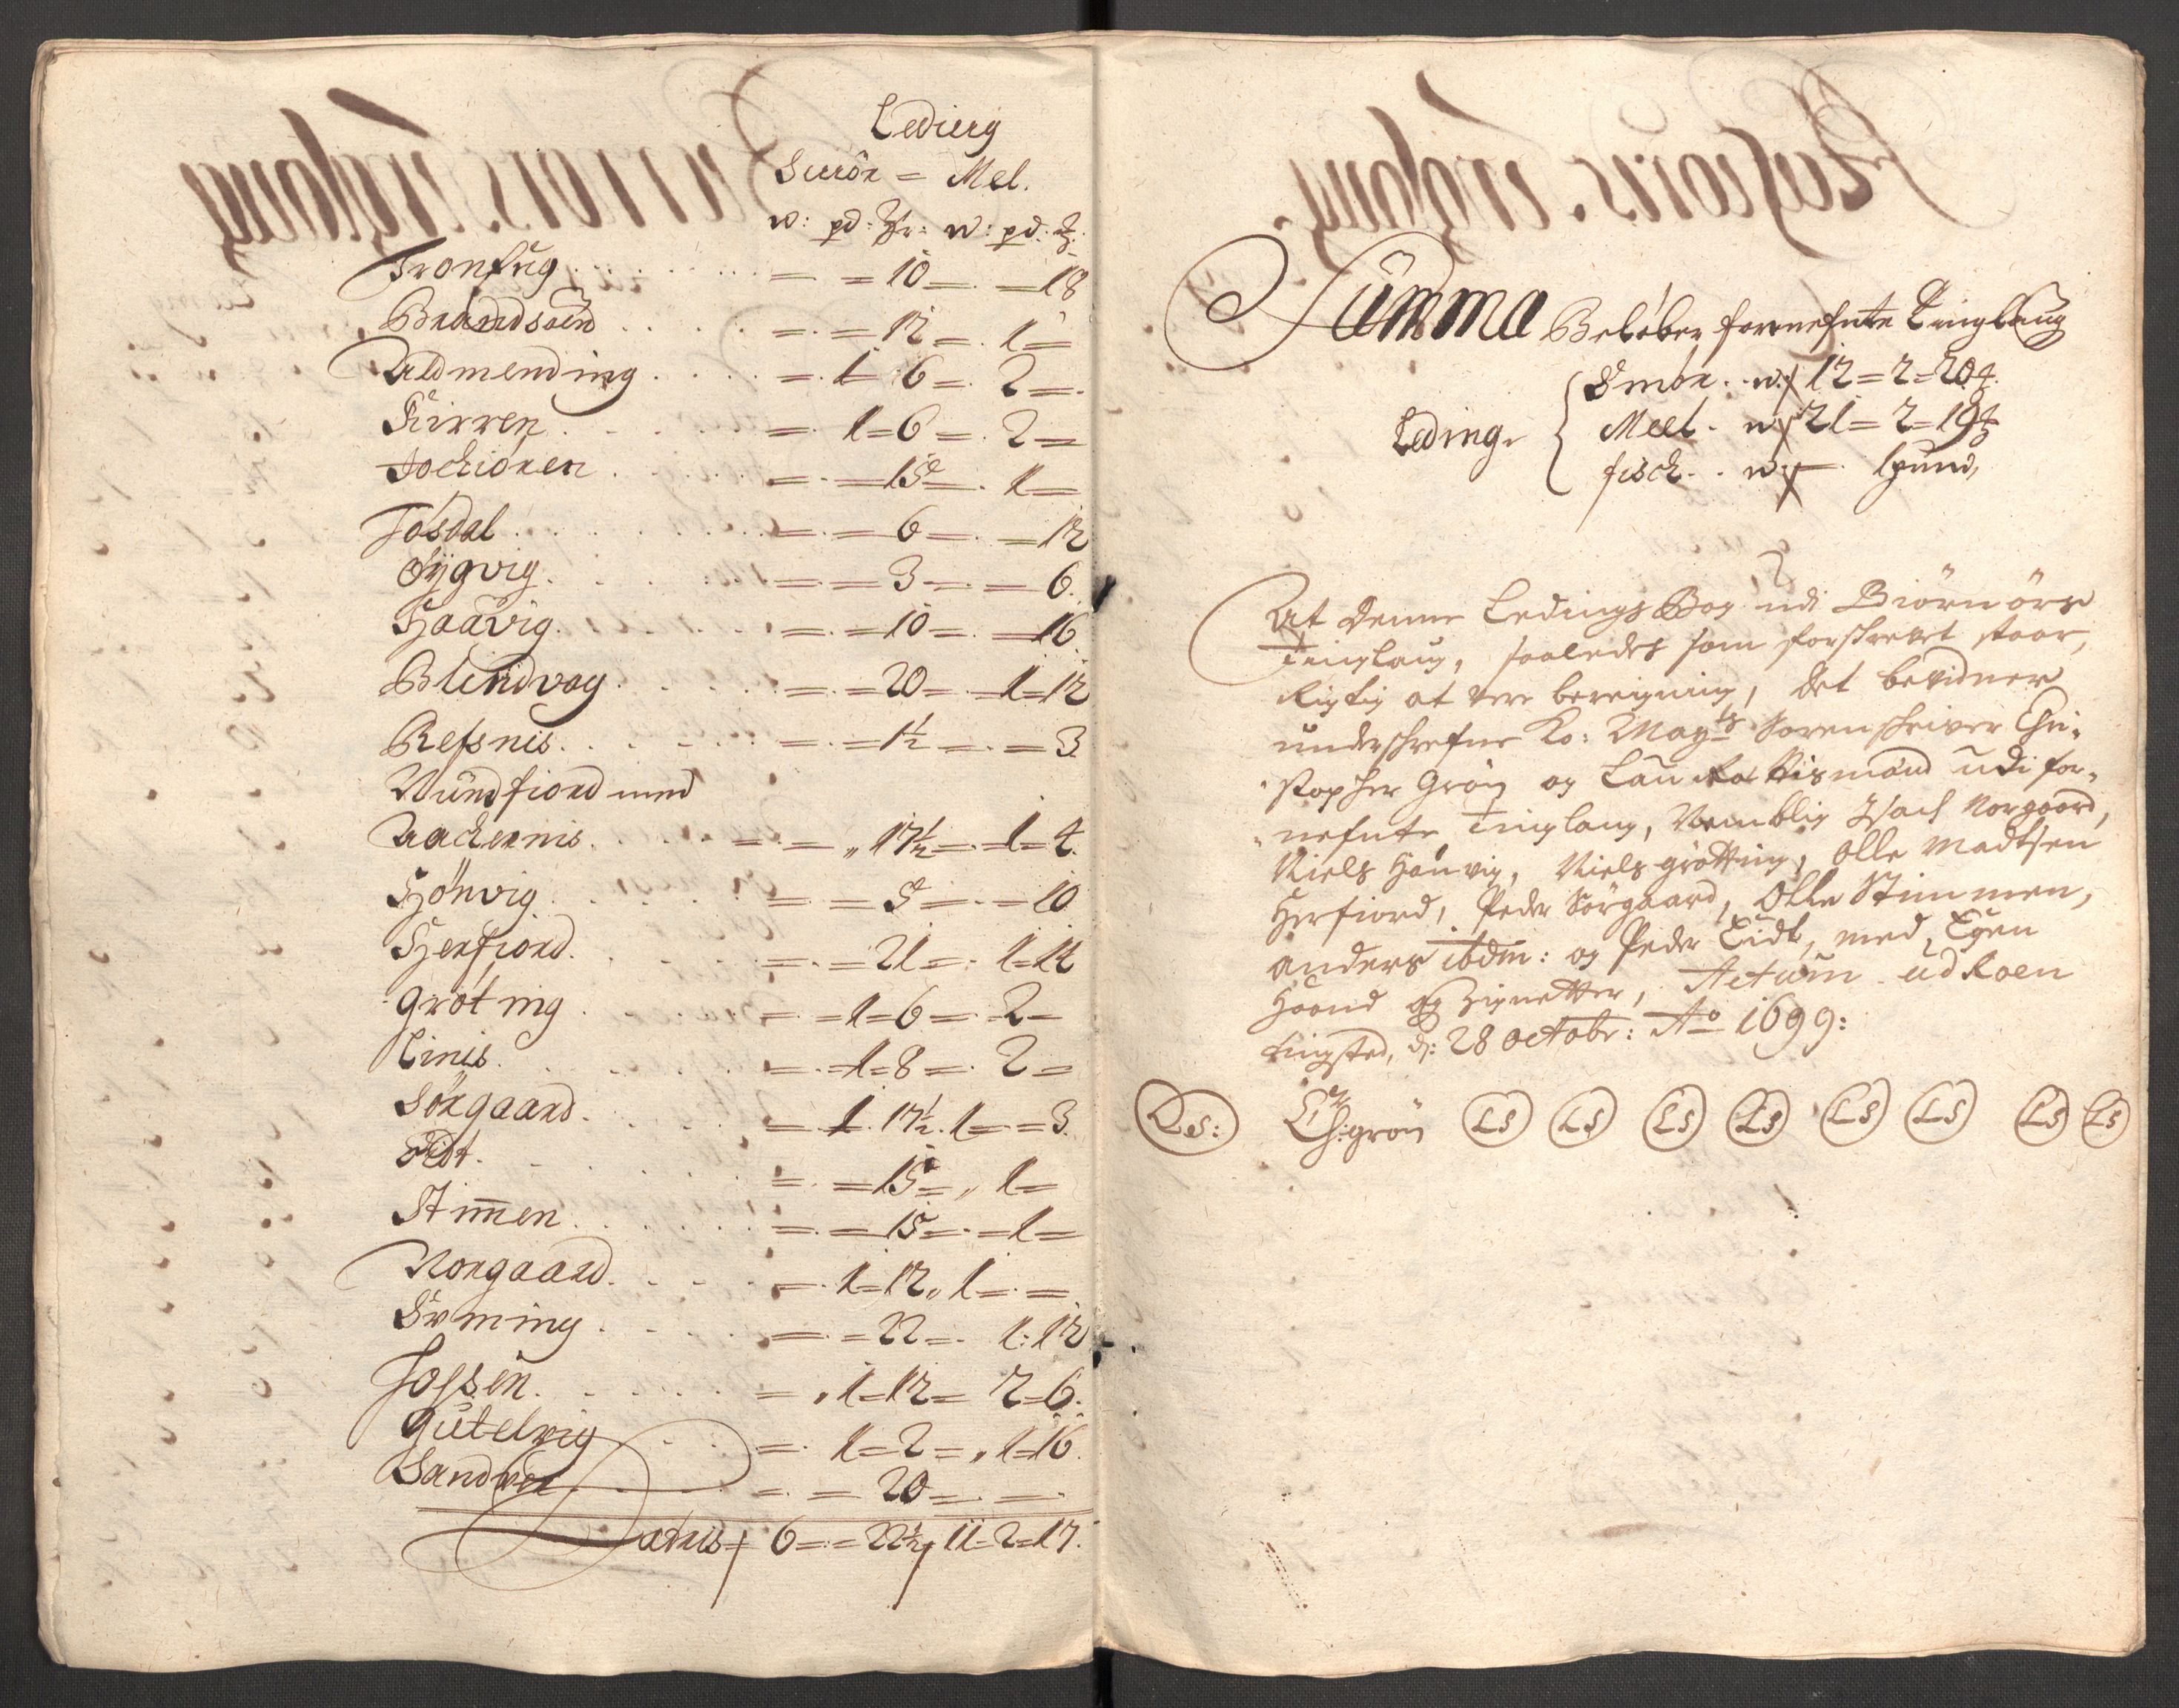 Ledierg
Smör = Mel.
w: pd: ℔r: w: pd: ℔.
Tronfug . . . = = 10 = . = 18
Brandsöen . . . = . = 12 = . 1 =
Aldmending . . . = . 1 6 = . 2 = .
Kirren . . . = . 1 = 6 = . 2 =
Tochiören . . . = . = 15 = . 1 =
Josdal . . . = . = 6 = . = 12
Sÿgvig . . . = . = 3 = . = 6.
Haavig . . . = . = 10 = . = 16
Blindvog . . . = . = 20 = . 1 = 12
Refsnis . . . = . = 1½ = . = 3
Nundfiord med
Aachernis . . . = . = „ 17½ = . 1 = 4.
Hönvig . . . = . = 5 = . = 10
Herfiord . . . = . = 21 = . 1 = 14
Gröting . . . = . 1 = 6 = . 2 =
Linis . . . = . 1 = 8 = . 2 =
Sörgaard . . . = . 1 . 17½ . 1 = = 3.
Eidt . . . = . = 15 = „ 1 =
Stim̄en . . . = . = 15 = . = 1 =
Norgaard . . . = . 1 = 12 „ 1 = . =
Örming . . . = . = 22 = . 1 : 12
Jossen . . . = . 1 = 12 = 2 = 6.
Gutelvig . . . = . 1 = 2 = „ 1 = 16.
Sandvær . . . = . = 20 = . = .
Latus = 6 = . = 22½ 11 = 2 = 17.
Summa Beløber fornefnte Tinglaug
Smör . . w: 12 = 2 = 20 ℔.
Leding. Meel . w: 21 = 2 = 19 ℔
fisch . . w: — . 1 pund,
At denne Ledings Bog udi Biörnörs
Tinglaug, saaledes som forschrevet staar,
Rigtig at vere bereigning, det bevidner
underschrefne Ko: Mayts Sorenschriver Chri-
stopher Grön og Laug Rettismænd udi for-
nefnte Tinglaug, Nemblig Isach Norgaard,
Niels Haúvig, Niels grötting, Olle Madtsen
Herfiord, Peder Sörgaard, Olle Stimmen,
Anders ibdm: og Peder Eidt, med Egen
Haand og Zignetter, Actum udRoen
tingsted, d: 28 octobr: Ao 1699:
LS: Ch:grön LS LS LS LS LS LS LS LS